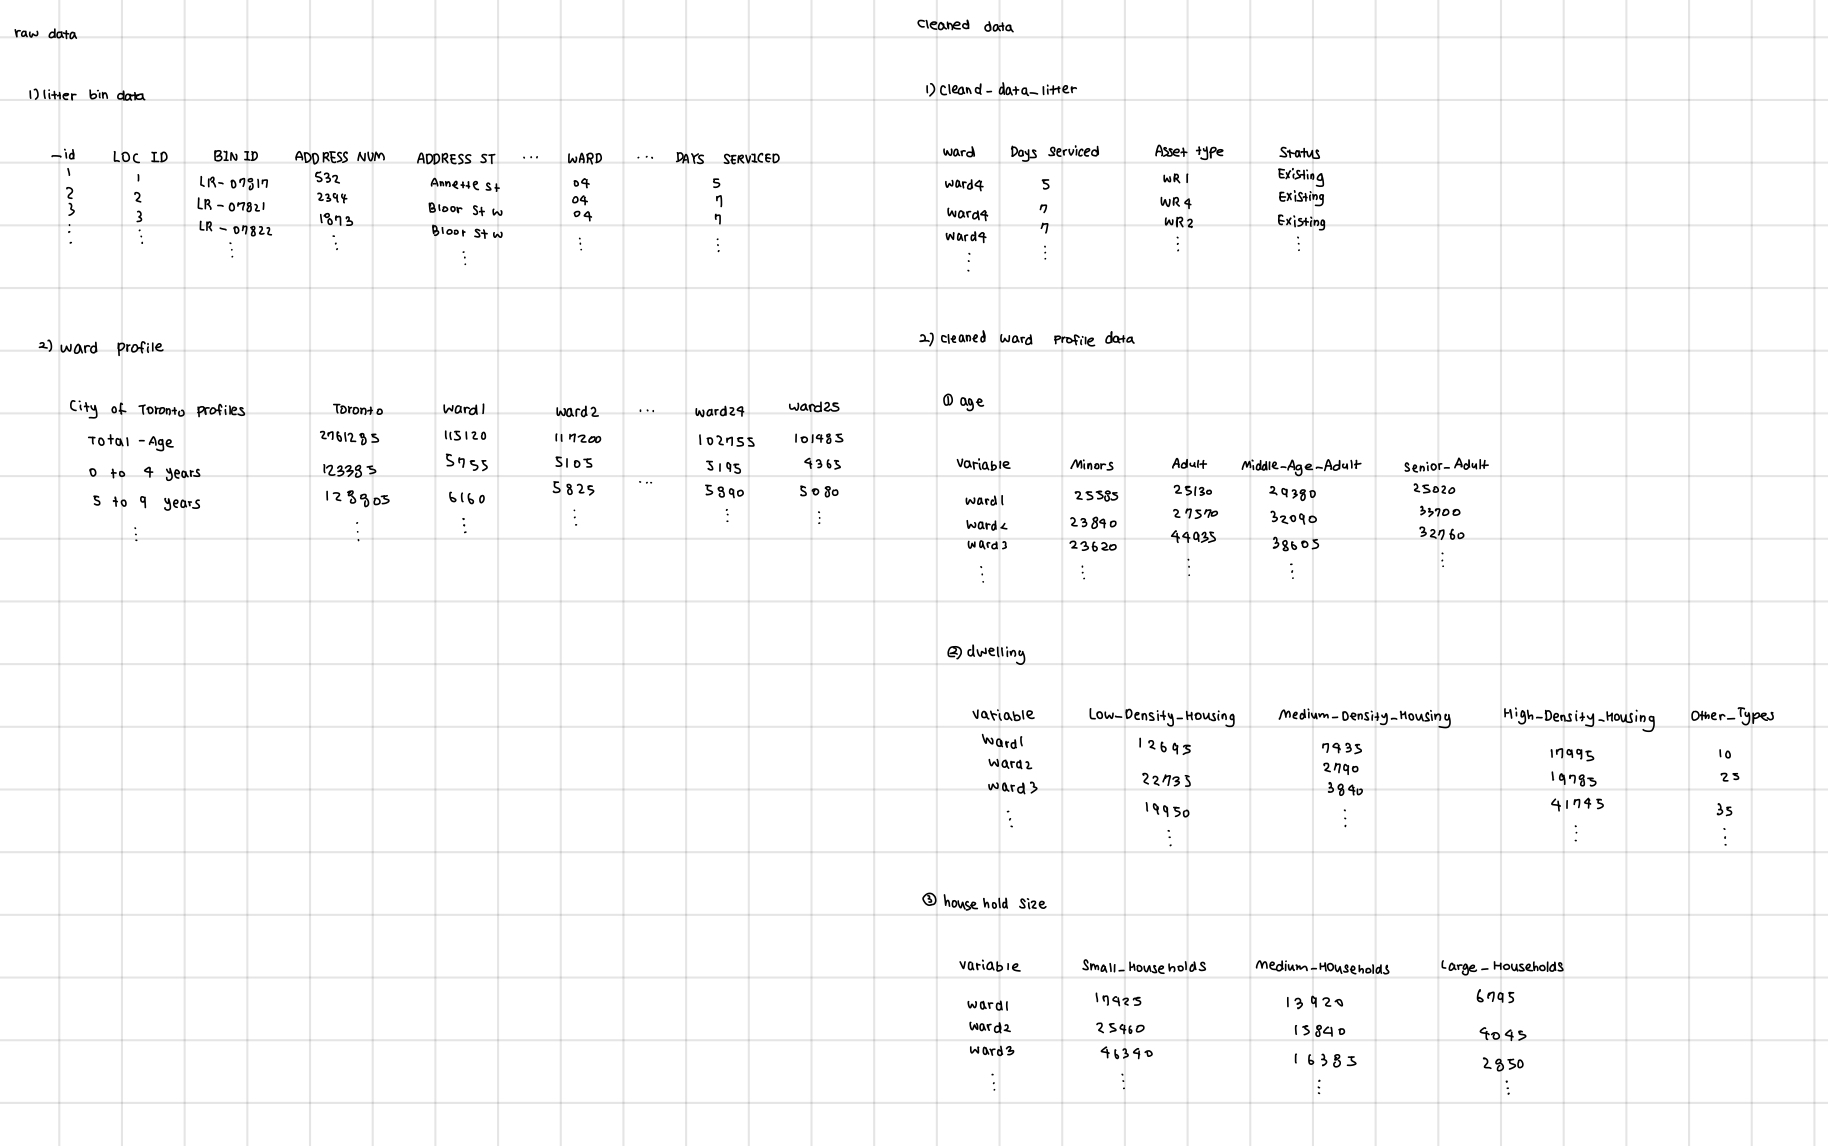 raw data
1) litter bin data
_id LOC ID BIN ID ADDRESS NUM ADDRESS ST ... WARD ... DAYS SERVICED
1 1 LR-07817 532 Annette st 04 5
2 2 LR-07821 2394 Bloor St W 04 7
3 3 LR-07822 1873 Bloor St W 04 7
2) ward profile
City of Toronto profiles Toronto Ward1 ward2 ... ward24 ward25
Total -Age 2761285 115120 117200 102755 101485
0 to 4 years 123385 5755 5105 5195 4365
5 to 9 years 128805 6160 5825 ... 5890 5080
Cleaned data
1) cleand-data_litter
ward Days serviced Asset type Status
ward4 5 WR1 Existing
ward4 7 WR4 Existing
ward4 7 WR2 Existing
2) cleaned ward profile data
① age
variable Minors Adult Middle-Age-Adult senior_Adult
ward1 25585 25130 29380 25020
ward2 23840 27570 32090 33700
ward3 23620 44935 38605 32760
② dwelling
variable Low_Density_Housing Medium_Density_Housing High_Density_Housing Other_Types
ward1 12695 7435 17995 10
ward2 22735 2790 19785 25
ward3 19950 3840 41745 35
③ house hold size
variable Small_Households Medium_Households Large_Households
ward1 17425 13920 6795
ward2 25460 15840 4045
ward3 46340 16385 2850